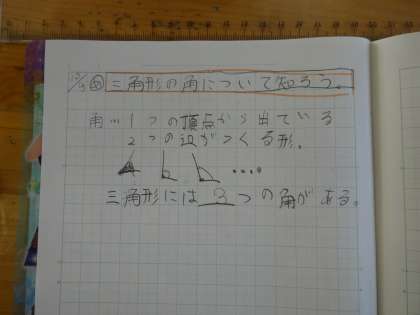 三角形の角について知ろう。
角…1つの頂点から出ている
2つの辺がつくる形。
三角形には3つの角がある。